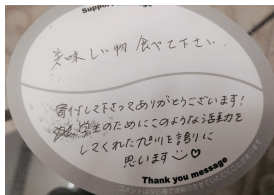 Support message
美味しい物食べて下さい.
寄付して下さってありがとうございます!
学生のためにこのような活動を
してくれた九州を誇りに
思います
Thank you message